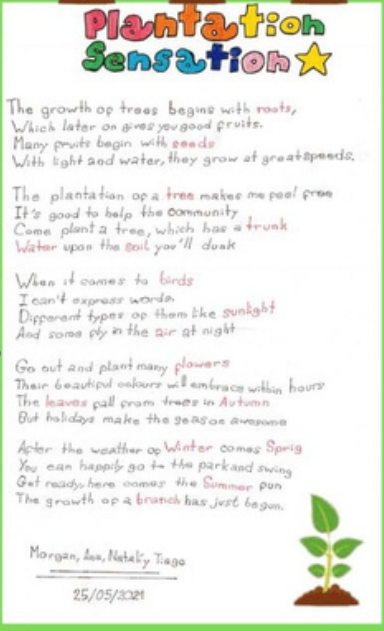 Plantation
Sensation
The growth of trees begins with roots,
Which later on gives you good fruits.
Many fruits begin with seeds
With light and water, they grow at great speeds.
The plantation of a tree makes me feel free
It's good to help the community
Come plant a tree, which has a trunk
Water upon the soil you'll dunk
When it comes to birds
I can't express words.
Different types of them like sunlight
And some fly in the air at night
Go out and plant many flowers
Their beautiful colours will embrace within hours
The leaves fall from trees in Autumn
But holidays make the season awesome
After the weather of Winter comes Sprig
You can happily go to the park and swing
Get ready, here comes the Summer fun
The growth of a branch has just begun.
Morgan, Ana, Natali y Tiago
25/05/2021